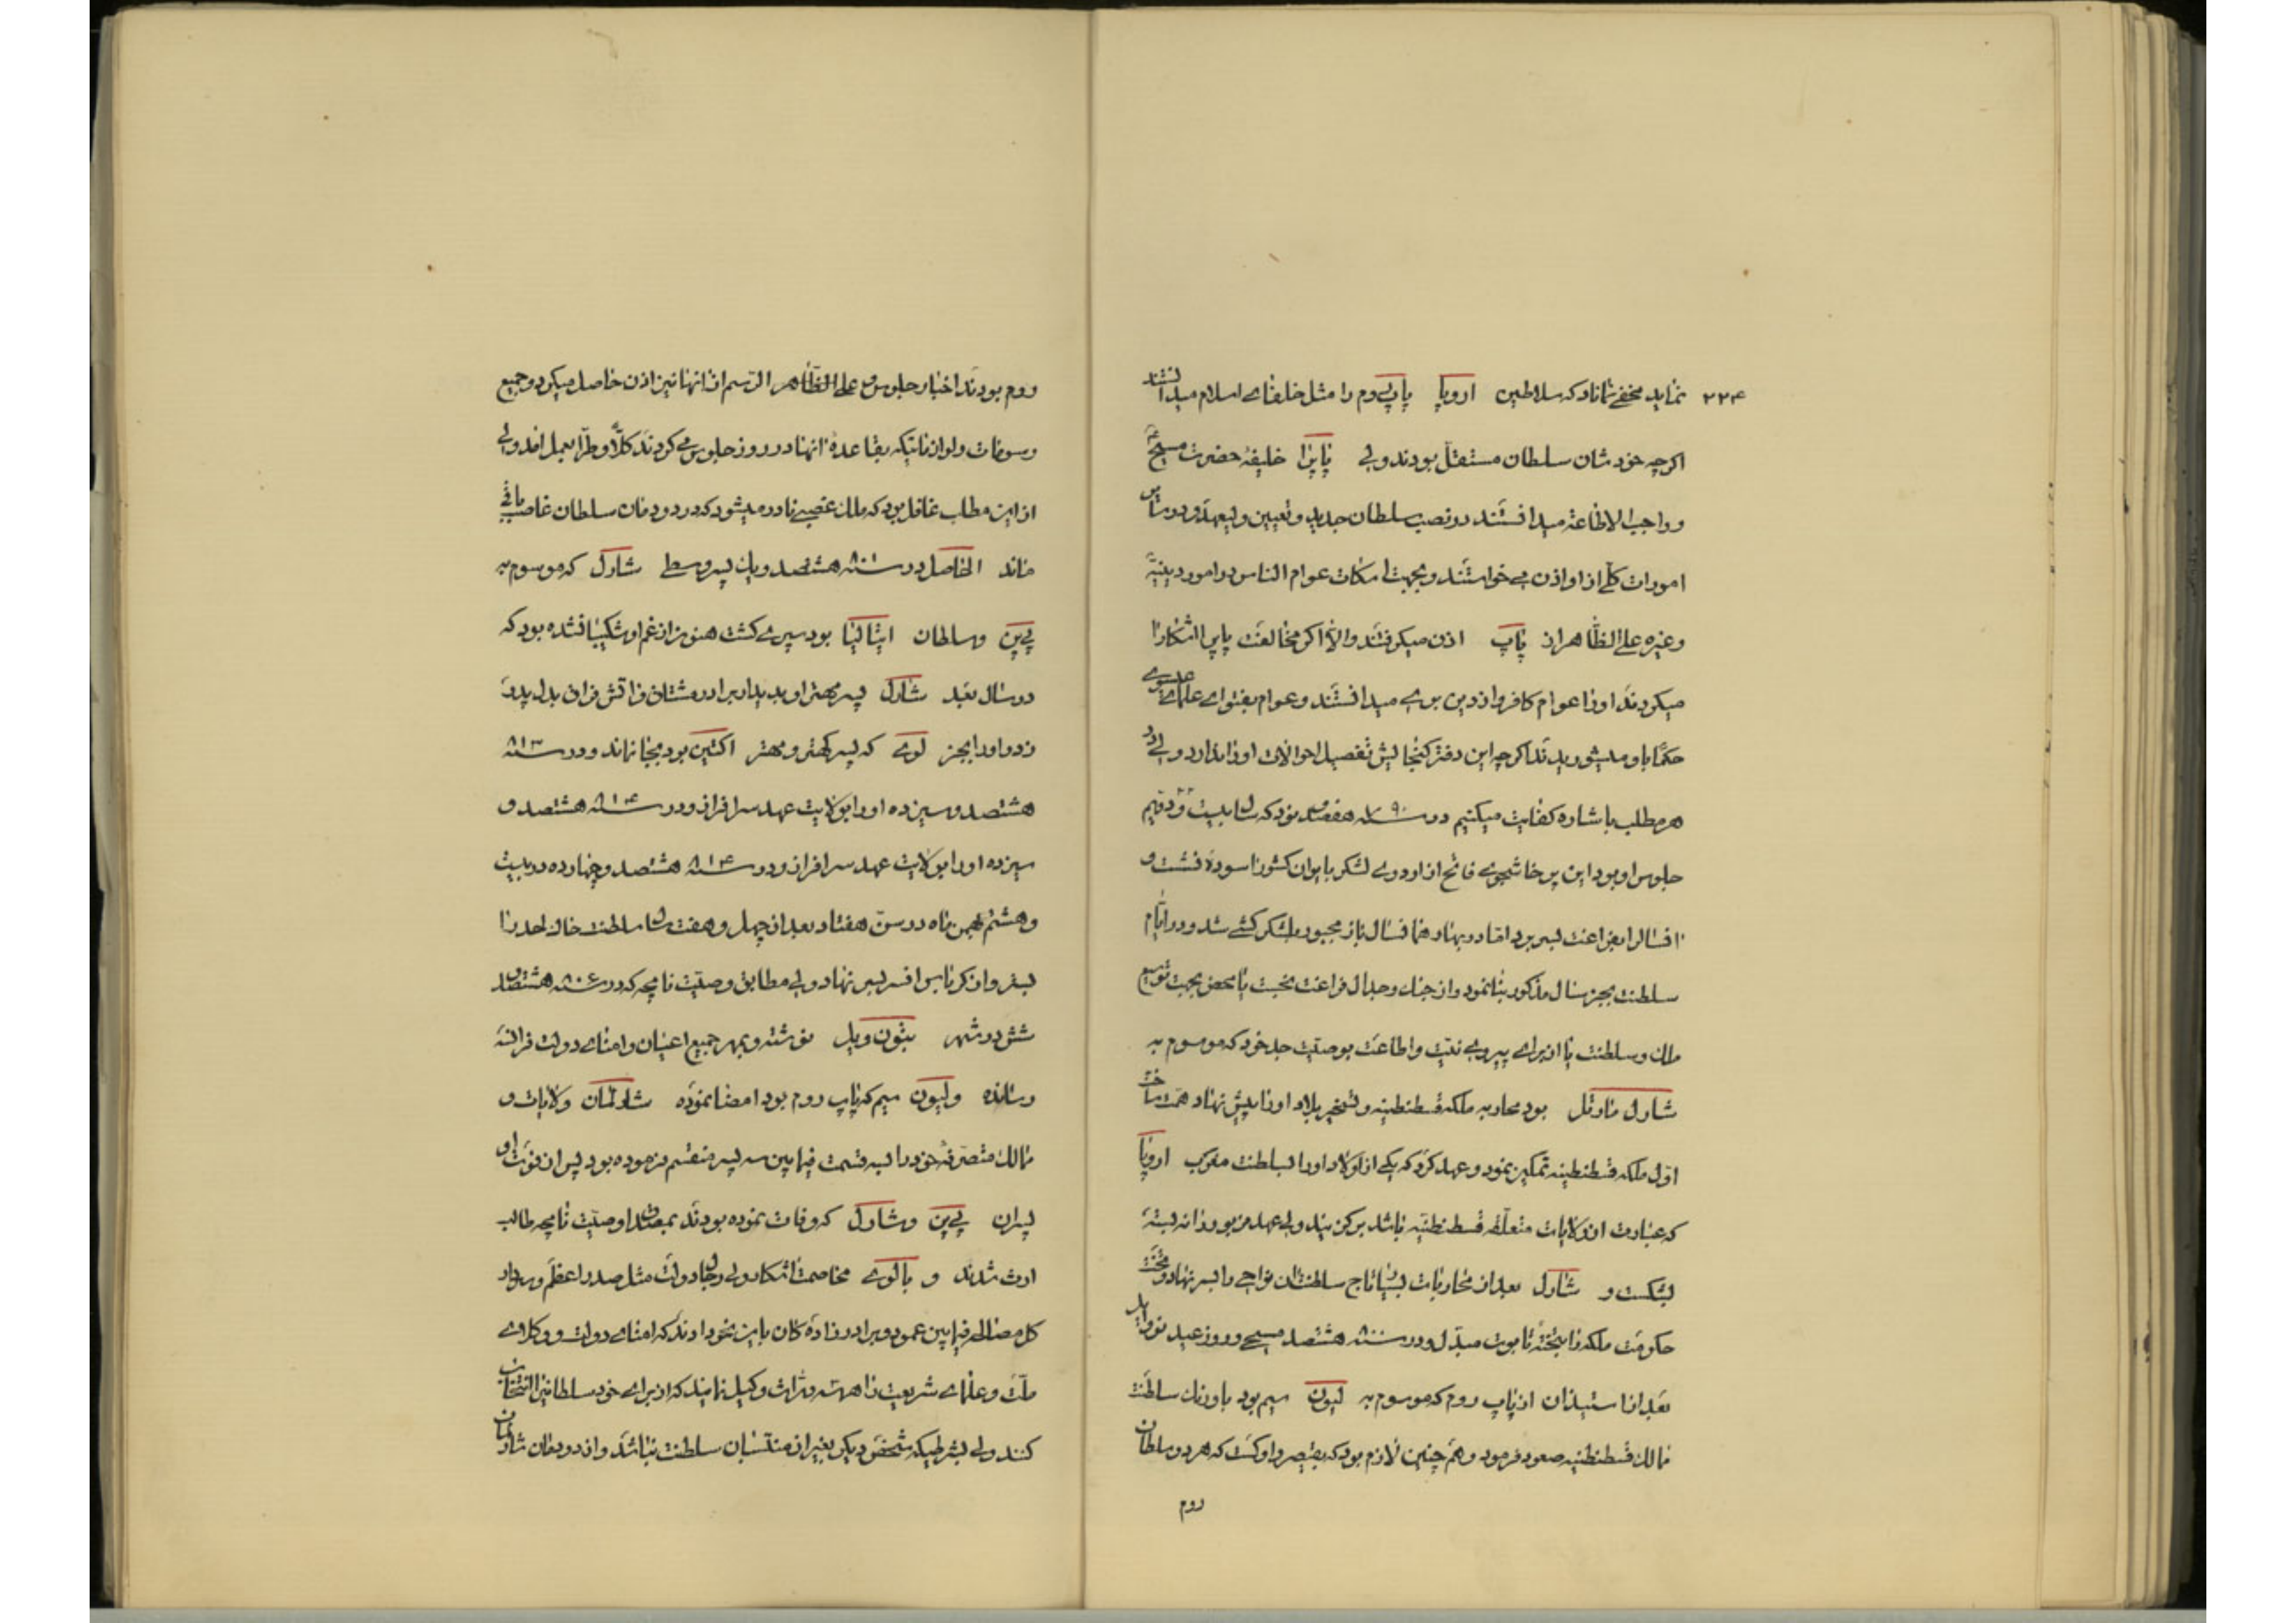 ۲۲۴ نماید مخفی نماناد که سلاطین اروپا پاپ روم را مثل خلفای اسلام میدانستند
اکرچه خودشان سلطان مستقل بودند ولی پاپ را خلیفهٔ حضرت مسیح
و واجب الاطاعة میدانستند در نصب سلطان جدید و تعیین ولیعهد و در سایر
امورات کلی از او اذن می خواستند و بجهت اسکات عوام الناس در امور دینیّه
و غیره علی الظاهر از پاپ اذن میکرفتند والّا اکر مخالفت پاپ را آشکارا
میکردند او را عوام کافر و از دین بری میدانستند و عوام بفتوای علمای عیسوی
حکما باو میشوریدند اکرچه این دفتر کنجایش تفصیل احوالات او را ندارد ولی از
هر مطلب باشاره کفایت میکنیم در سنه ۷۹۰ هفصد نود که سال بیست و دویم
جلوس او بود این پرخاشجوی فاتح از اردوی لشکر بایوان کشور آسوده نشست و
آنسال را بفراغت بسر برد اما در بهار همانسال باز مجبور بلشکر کشی شد و در ایّام
سلطنت بجز سال مذکور بنا نمود و از جنک و جدال فراغت نجست یا محض بجهت توسیع
ملک و سلطنت یا از برای پیروی نیّت و اطاعت بوصیّت جد خود که موسوم به
شارل مارتل بود محاربه ملکه قسطنطنیه و تسخیر بلاد او را پیش نهاد همّت ساخت
اوّل ملکه قسطنطنیه تمکین نمود و عهد کرد که یکی از اولاد او را بسلطنت مغرب اروپا
که عبارت از ولایات متعلّقه قسطنطنیّه باشد برکزیند ولی عهد مزبور را نه بسته
بشکست و شارل بعد از محاربات بسیار تاج سلطنت آن نواحی را بسر نهاد و تخت
حکومت ملکه را بتختهٔ تابوت مبدّل و در سنه ۸۰۰ هشتصد مسیحی و روز عید نوئل
بعد از استیذان از پاپ روم که موسوم به لیون سیم بود باورنک سلطنت
ممالک قسطنطنیه صعود فرمود و هم چنین لازم بود که بقیصر داوکست که هر دو سلطان
روم
روم بودند اخبار جلوس علی الظاهر الرسم از انها نیز اذن حاصل میکرد و جمیع
رسومات و لوازماتیکه بقاعدهٔ انها در روز جلوس می کردند کلّاً و طرّاً بعمل امد ولی
از این مطلب غافل بود که ملک غصبی نادر میشود که در دودمان سلطان غاصب باقی
ماند الحاصل در سنه ۸۰۱ هشتصد و یک پسر وسطی شارل که موسوم به
پی‌پن و سلطان ایتالیا بود سپری کشت هنوز از غم او شکیبا نشده بود که
در سال بعد شارل پسر مهتر او بدیدار برادر مشتاق و آتش فراق بدل پدر
زد و او را بجز لوی که پسر کهتر و مهتر اکنین بود بجا نماند و در سنه ۸۱۳
هشتصد و سیزده او را بولایت عهد سرافراز و در سنه ۸۱۴ هشتصد و
سیزده او را بولایت عهد سرافراز و در سنه ۸۱۴ هشتصد و چهارده در بیست
و هشتم بهمن ماه در سنّ هفتاد بعد از چهل و هفت سال سلطنت خاک لحد را
بستر و از کرباس افسر بسر نهاد ولی مطابق وصیّت نامچه که در سنه ۸۰۶ هشتصد
شش در شهر تیون ویل نوشته و بمهر جمیع اعیان و امنای دولت فرانسه
رسانده و لیون سیم که پاپ روم بود امضا نموده شارلمان ولایات و
ممالک متصرّفهٔ خود را بسه قسمت فیمابین سه پسر منقسم فرموده بود پس از فوت او
پسران پی‌پن و شارل که وفات نموده بودند بمصداق وصیّت نامچه طالب
ارث شدند و با لوی مخاصمت آشکار ولی رجال دولت مثل صدر اعظم و سردار
کل مصالحه فیمابین عمو و برادرزاده کان باین نحو دادند که امنای دولت و وکلای
ملّت و علمای شریعت را وکیل نمایند که از برای خود سلطانی انتخاب
کنند ولی بشرطیکه شخص دیکر بغیر از منتسبان سلطنت نباشد و از دودمان شارلمان